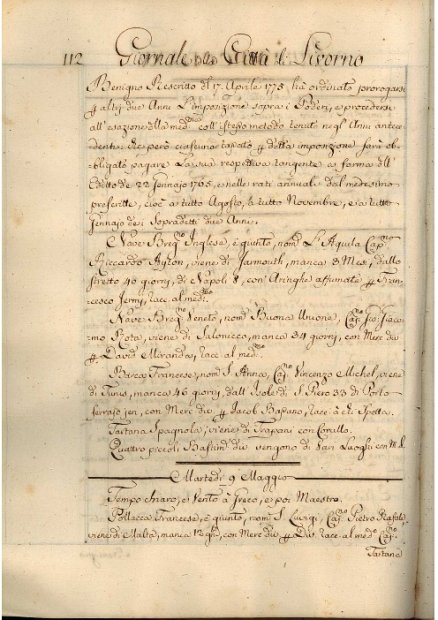 112 Giornale della Città di Livorno
Benigno Rescritto del 17. Aprile 1775 ha ordinato prorogarsi
p altri due Anni l'imposizione sopra i Poderi, e procedersi
all'esazione della med.ma coll'istesso metodo tenuto negl'Anni antece
denti. Che però ciascuno tassato p detta imposizione sarà ob-
bligato pagare la sua respettiva tangente a forma dell'
Editto de 22 Gennajo 1765, e nelle rati annuali dal medesimo
prescritte, cioè a tutto Agosto, a tutto Novembre, e a tutto
Gennajo dei Sopradetti due Anni.
Nave Breg.no Inglese, è giunto, nom.o L'Aquila Cap.no
Riccardo Ayton, viene di Jarmouth, manca 3 Mesi, dallo
stretto 40 giorni, di Napoli 8, con Aringhe affumate p Fran-
cesco Jermy, race. al med.mo
Nave Breg.no Veneto, nom.o Buona Unione, Cap. Gio: Giaco-
mo Rota, viene di Salonicco, manca 34 giorni, con Merc. div.
p David Miranda, race. al med.mo
Barca Francese, nom.a S. Anna, Cap.no Vincenzo Michel, viene
di Tunis, manca 46 giorni, dall'Isole di S. Piero 33 di Porto
ferrajo jeri, con Merc. div. p Jacob Bassano, race. a chi Spetta.
Tartana Spagnola, viene di Trapani con Corallo.
Quattro piccoli Bastim. div. vengono di Vari Luoghi con M. d.
Martedì 9 Maggio
Tempo chiaro, e Vento a Greco, e poi Maestro.
Pollacca Francese, è giunto, nom.a S. Luigi, Cap.no Pietro
viene di Malta, manca 12 g.ni, con Merc. div. p Div. race. al med.o Cap.
Tartana